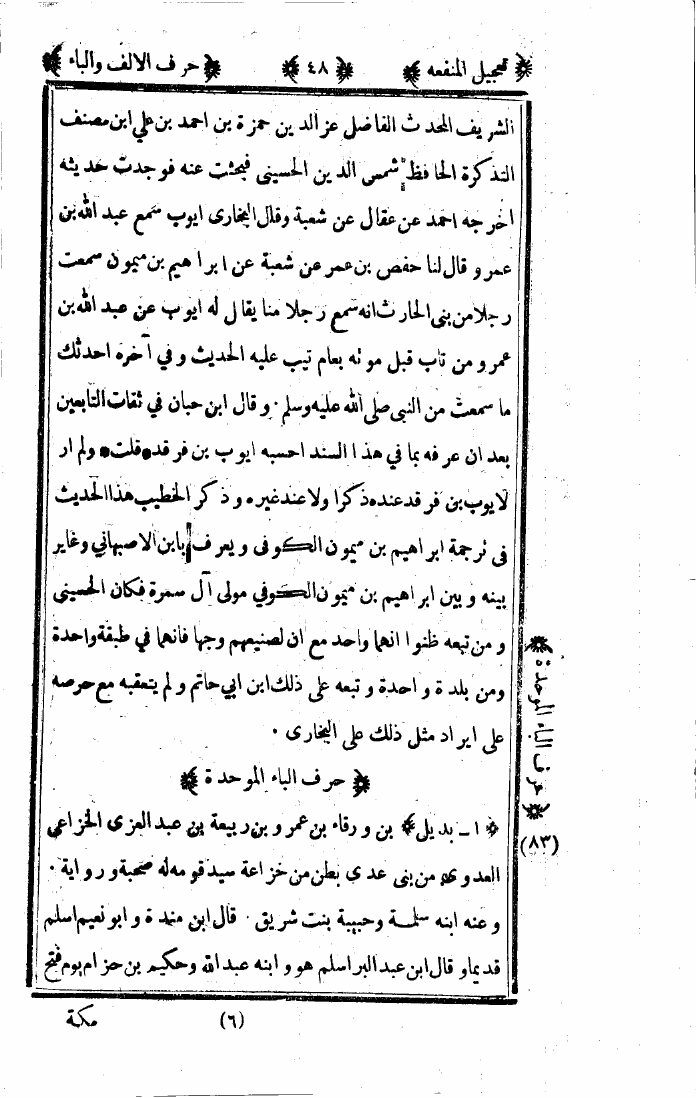 ﴿ تعجيل المنفعه ﴾ ﴿ ٤٨ ﴾ ﴿ حرف الالف والباء ﴾
الشريف المحدث الفاضل عز الدين حمزة بن احمد بن علي ابن مصنف
التذكرة الحافظ شمس الدين الحسينى فبحثت عنه فوجدت حديثه
اخرجه احمد عن عقال عن شعبة وقال البخارى ايوب سمع عبد الله بن
عمرو قال لنا حفص بن عمر عن شعبة عن ابراهيم بن ميمون سمعت
رجلا من بنى الحارث انه سمع رجلا منا يقال له ايوب عن عبد الله بن
عمرو من تاب قبل موته بعام تيب عليه الحديث وفي آخره احدثك
ما سمعت من النبي صلى الله عليه وسلم · وقال ابن حبان في ثقات التابعين
بعد ان عرفه بما في هذا السند احسبه ايوب بن فرقد * قلت * ولم ار
لايوب بن فرقد عنده ذكرا ولا عند غيره وذكر الخطيب هذا الحديث
فى ترجمة ابراهيم بن ميمون الكوفى ويعرف بابن الاصبهاني وغاير
بينه وبين ابراهيم بن ميمون الكوفي مولى آل سمرة فكان الحسينى
ومن تبعه ظنوا انهما واحد مع ان لصنيعهم وجها فانهما في طبقة واحدة
ومن بلدة واحدة وتبعه على ذلك ابن ابي حاتم ولم يتعقبه مع حرصه
على ايراد مثل ذلك على البخارى ·
﴿ حرف الباء الموحدة ﴾
﴿ ١ ـ بديل ﴾ بن ورقاء بن عمرو بن ربيعة بن عبد العزى الخزاعي
العدوى من بنى عدى بطن من خزاعة سيد قومه له صحبة ورواية ·
وعنه ابنه سلمة وحبيبة بنت شريق · قال ابن مندة وابو نعيم اسلم
قديما وقال ابن عبد البر اسلم هو وابنه عبد الله وحكيم بن حزام يوم فتح
﴿ حرف الباء الموحدة ﴾
(٨٣)
(٦) مكة